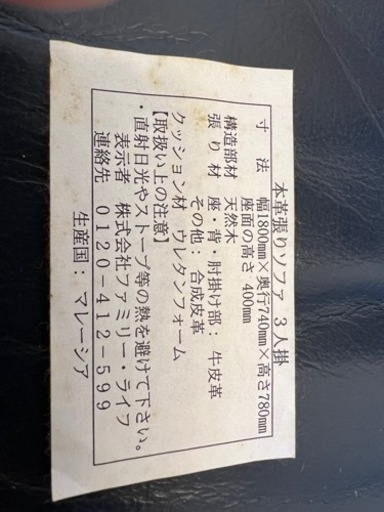 本革張りソファ 3人掛
寸法 幅1800mm×奥行740mm×高さ780mm
座面の高さ 400mm
構造部材 天然木
張り材 座・背・肘掛け部：牛皮革
その他：合成皮革
クッション材 ウレタンフォーム
【取扱い上の注意】
・直射日光やストーブ等の熱を避けて下さい。
表示者 株式会社ファミリー・ライフ
連絡先 0120-412-599
生産国：マレーシア